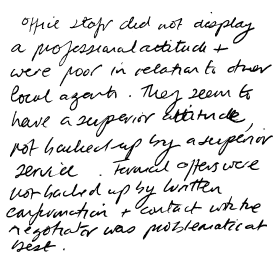 Office staff did not display
a professional attitude +
were poor in relation to other
local agents. They seem to
have a superior attitude,
not backed up by a superior
service. Formal offers were
not backed up by written
confirmation + contact with the
negotiator was problematic at
best.